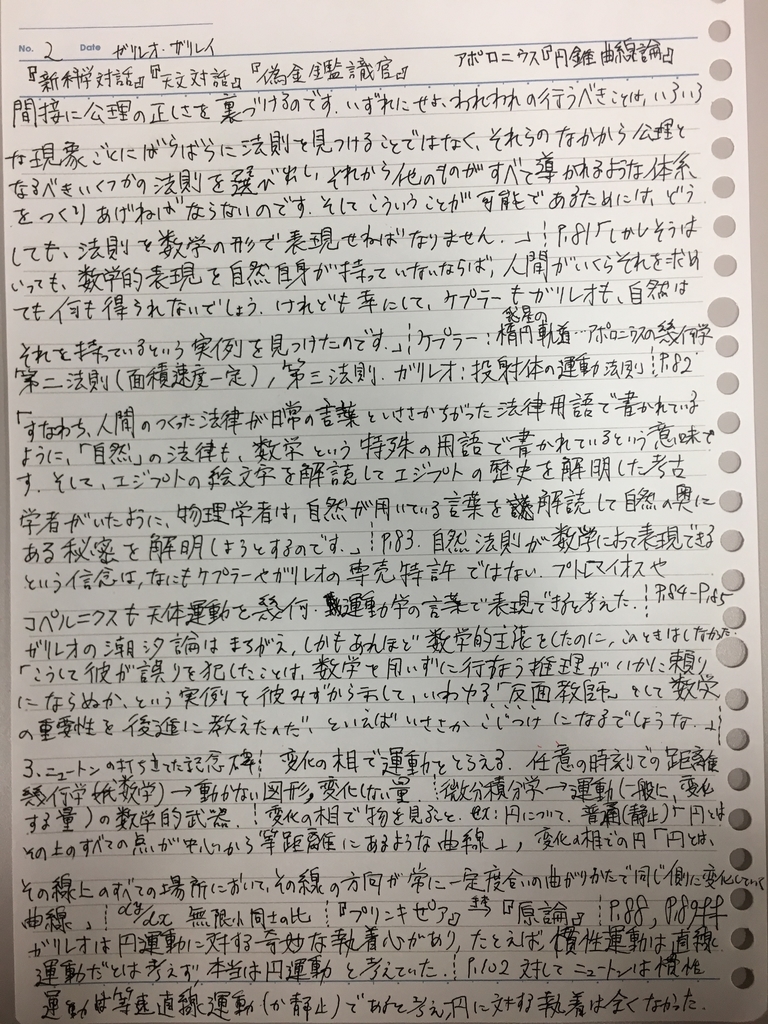 No. 2 Date ガリレオ・ガリレイ
『新科学対話』『天文対話』『偽金鑑識官』 アポロニウス『円錐曲線論』
間接に公理の正しさを裏づけるのです. いずれにせよ, われわれの行うべきことは, いろいろ
な現象ごとにばらばらに法則を見つけることではなく, それらのなかから公理と
なるべきいくつかの法則を選び出し, それから他のものがすべて導かれるような体系
をつくりあげねばならないのです. そしてこういうことが可能であるためには, どう
しても, 法則を数学の形で表現せねばなりません. 」 P.81「しかしそうは
いっても, 数学的表現を自然自身が持っていないならば, 人間がいくらそれを求め
ても何も得られないでしょう. けれども幸にして, ケプラーもガリレオも, 自然は
惑星の
それを持っているという実例を見つけたのです. 」 ケプラー: 楕円軌道…アポロニウスの幾何学
第二法則(面積速度一定), 第三法則. ガリレオ: 投射体の運動法則 P.82
「すなわち, 人間のつくった法律が日常の言葉といささかちがった法律用語で書かれている
ように, 「自然」の法律も, 数学という特殊の用語で書かれているという意味で
す. そして, エジプトの絵文字を解読してエジプトの歴史を解明した考古
学者がいたように, 物理学者は, 自然が用いている言葉を解読して自然の奥に
ある秘密を解明しようとするのです. 」 P.83. 自然法則が数学によって表現できる
という信念は, なにもケプラーやガリレオの専売特許ではない. プトレマイオスや
コペルニクスも天体運動を幾何・運動学の言葉で表現できると考えた. P.84-P.85
ガリレオの潮汐論はまちがえ, しかもあれほど数学的主張をしたのに, このときはしなかった.
「こうして彼が誤りを犯したことは, 数学を用いずに行なう推理がいかに頼り
にならぬか, という実例を彼みずから示して, いわゆる「反面教師」として数学
の重要性を後進に教えたんだ, といえばいささかこじつけになるでしょうな. 」
3. ニュートンの打ち立てた記念碑 変化の相で運動をとらえる. 任意の時刻での距離
幾何学(純数学)→動かない図形, 変化しない量 微分積分学→運動(一般に, 変化
する量)の数学的武器. 変化の相で物を見ると. ex: 円について. 普通(静止)「円とは
その上のすべての点が中心から等距離にあるような曲線」, 変化の相での円「円とは,
その線上のすべての場所において, その線の方向が常に一定度合の曲がりかたで同じ側に変化していく
曲線」 dy/dx 無限小同士の比 『プリンキピア』 『原論』 P.88, P.89
ガリレオは円運動に対する奇妙な執着心があり, たとえば, 慣性運動は直線
運動だとは考えず, 本当は円運動と考えていた. P.102 対してニュートンは慣性
運動は等速直線運動(か静止)であると考え, 円に対する執着は全くなかった.